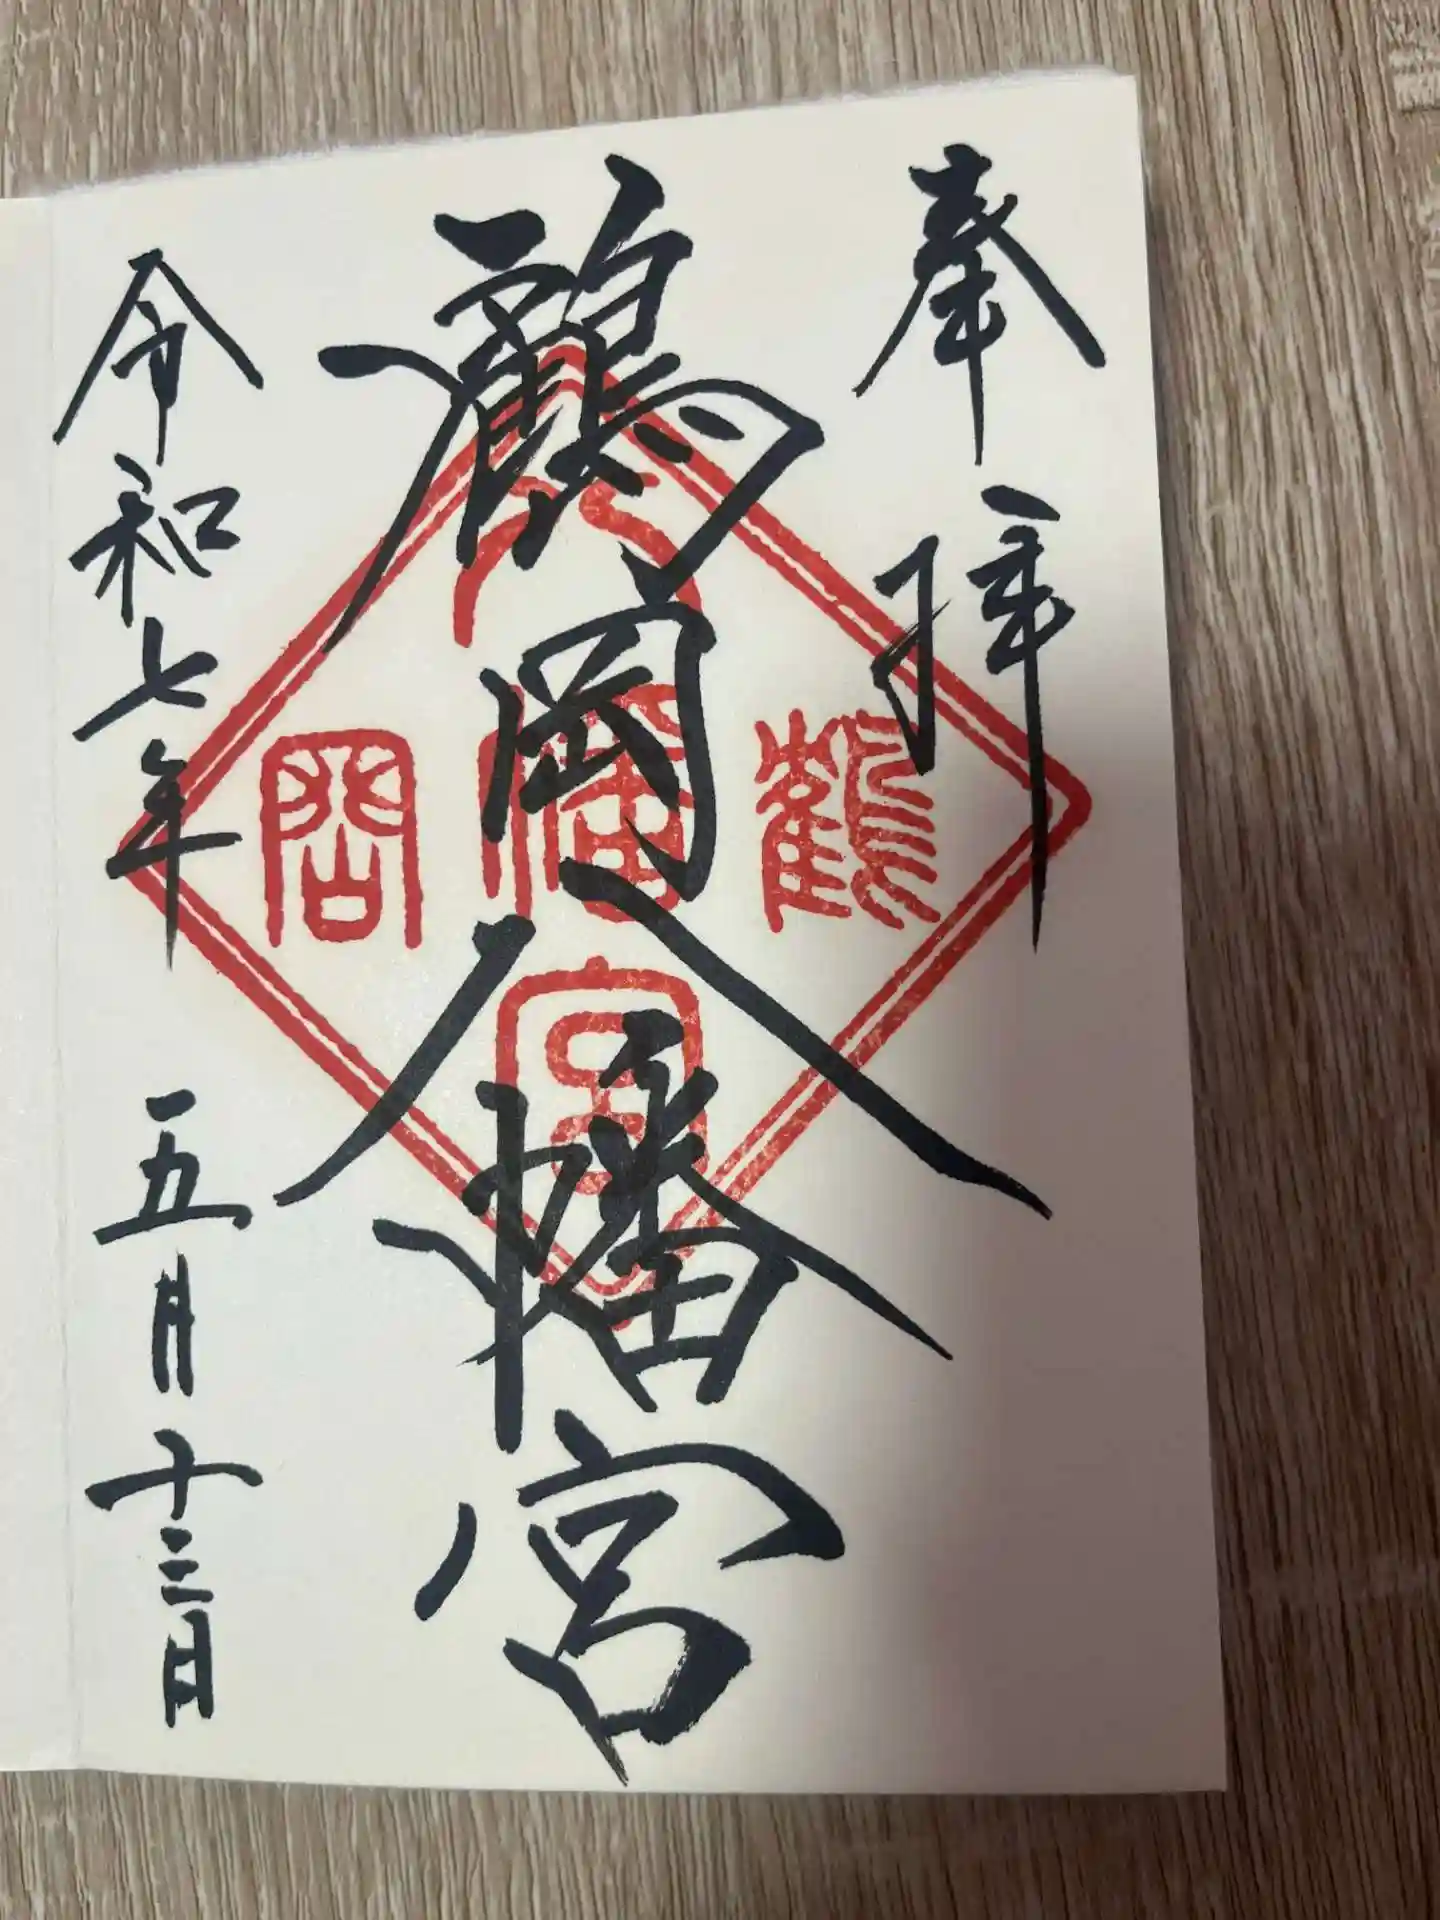 奉拝
鶴岡八幡宮
令和七年 五月十三日
八
鶴 幡 岡
宮